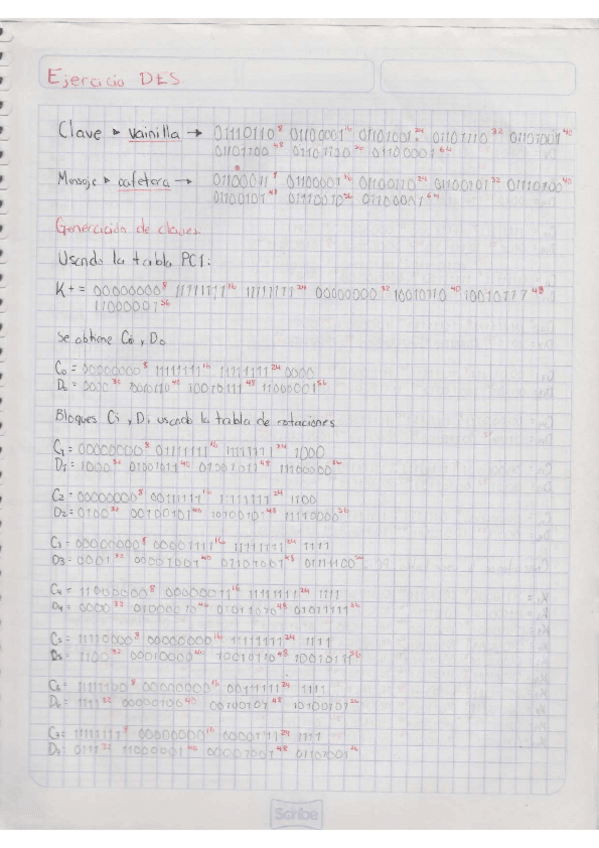 Ejercicio DES
Clave ▸ vainilla → 01110110⁸ 01100001¹⁶ 01101001²⁴ 01101110³² 01101001⁴⁰
01101100⁴⁸ 01101100⁵⁶ 01100001⁶⁴
Mensaje ▸ cafetera → 01100011⁸ 01100001¹⁶ 01100110²⁴ 01100101³² 01110100⁴⁰
01100101⁴⁸ 01110010⁵⁶ 01100001⁶⁴
Generación de claves
Usando la tabla PC1:
K+ = 00000000⁸ 11111111¹⁶ 11111111²⁴ 00000000³² 10010110⁴⁰ 10010111⁴⁸
11000001⁵⁶
Se obtiene C₀, D₀
C₀ = 00000000⁸ 11111111¹⁶ 11111111²⁴ 0000
Bloques Ci, Di usando la tabla de rotaciones
C₁ = 00000000⁸ 01111111¹⁶ 11111111²⁴ 1000
D₁ = 1000³² 01001011⁴⁰ 01001011⁴⁸ 11100000⁵⁶
C₂ = 00000000⁸ 00111111¹⁶ 11111111²⁴ 1100
D₂ = 0100³² 00100101⁴⁰ 10100101⁴⁸ 11110000⁵⁶
C₃ = 00000000⁸ 00001111¹⁶ 11111111²⁴ 1111
D₃ = 0001³² 00001001⁴⁰ 01101001⁴⁸ 01111100⁵⁶
C₄ = 11000000⁸ 00000011¹⁶ 11111111²⁴ 1111
D₄ = 0000³² 01000010⁴⁰ 01011010⁴⁸ 01011111⁵⁶
C₅ = 11110000⁸ 00000000¹⁶ 11111111²⁴ 1111
D₅ = 1100³² 00010000⁴⁰ 10010110⁴⁸ 10010111⁵⁶
C₆ = 11111100⁸ 00000000¹⁶ 00111111²⁴ 1111
D₆ = 1111³² 00000100⁴⁰ 00100101⁴⁸ 10100101⁵⁶
C₇ = 11111111⁸ 00000000¹⁶ 00001111²⁴ 1111
D₇ = 0111³² 11000001⁴⁰ 00001001⁴⁸ 01101001⁵⁶
Scribe